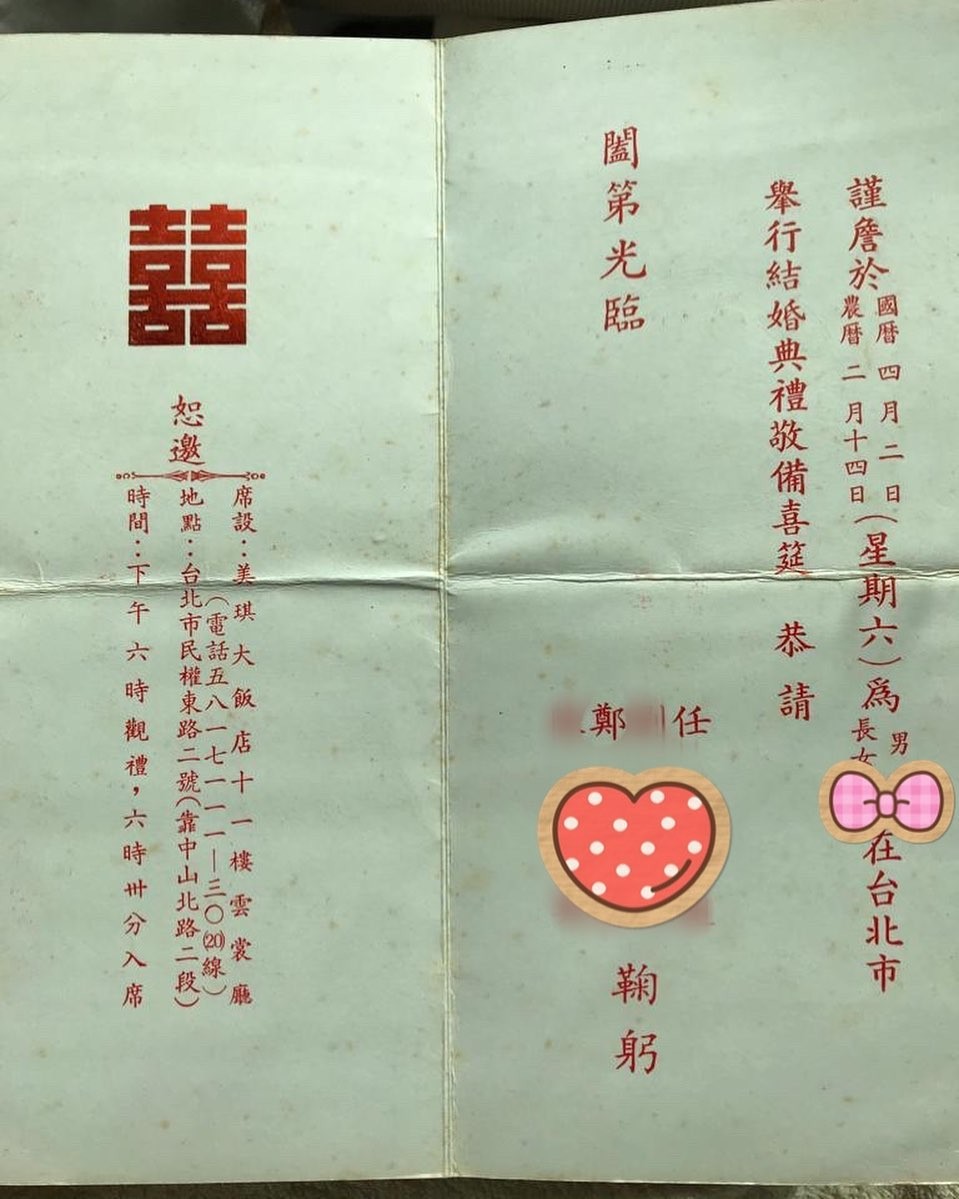 謹詹於
國暦四月二日
農暦二月十四日
（星期六）為
男
長女
在台北市
舉行結婚典禮敬備喜筵 恭請
闔第光臨
任
鄭
鞠躬
囍
恕邀
席設：美琪大飯店十一樓雲裳廳
（電話五八一七一一一—三〇⒇線）
地點：台北市民權東路二號（靠中山北路二段）
時間：下午六時觀禮，六時卅分入席